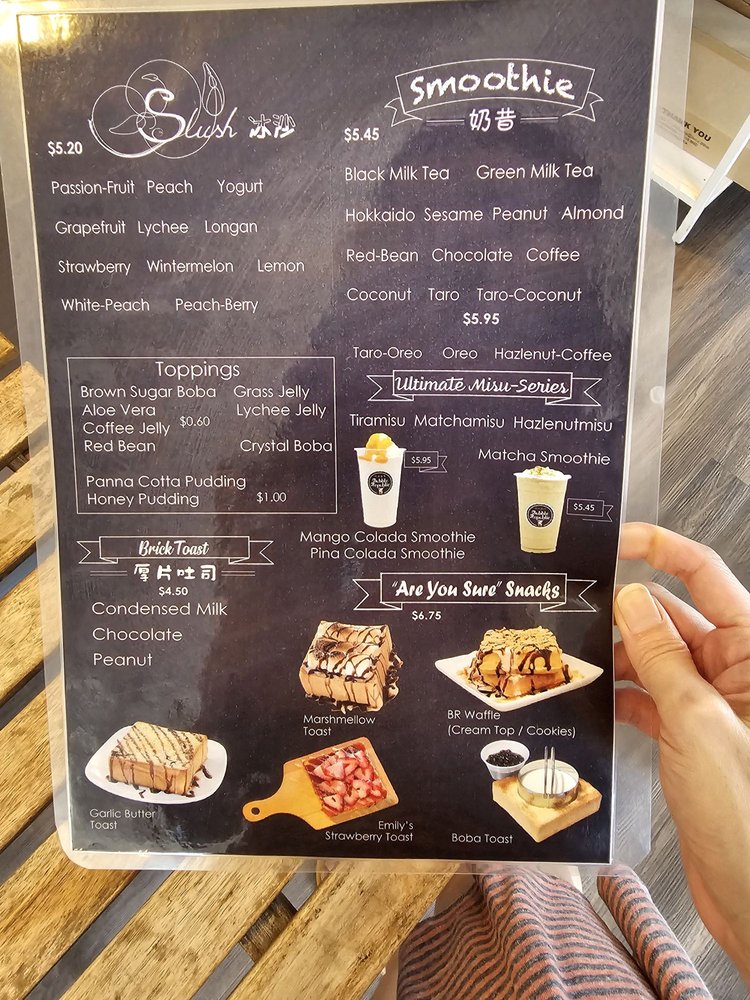 Slush 冰沙
$5.20
Passion-Fruit Peach Yogurt
Grapefruit Lychee Longan
Strawberry Wintermelon Lemon
White-Peach Peach-Berry
Smoothie
奶昔
$5.45
Black Milk Tea Green Milk Tea
Hokkaido Sesame Peanut Almond
Red-Bean Chocolate Coffee
Coconut Taro Taro-Coconut
$5.95
Taro-Oreo Oreo Hazlenut-Coffee
Toppings
Brown Sugar Boba Grass Jelly
Aloe Vera Lychee Jelly
Coffee Jelly $0.60
Red Bean Crystal Boba
Panna Cotta Pudding
Honey Pudding $1.00
Ultimate Misu-Series
Tiramisu Matchamisu Hazlenutmisu
$5.95
Matcha Smoothie
$5.45
Mango Colada Smoothie
Pina Colada Smoothie
Brick Toast
厚片吐司
$4.50
Condensed Milk
Chocolate
Peanut
"Are You Sure" Snacks
$6.75
Marshmellow
Toast
BR Waffle
(Cream Top / Cookies)
Garlic Butter
Toast
Emily's
Strawberry Toast
Boba Toast
YOU